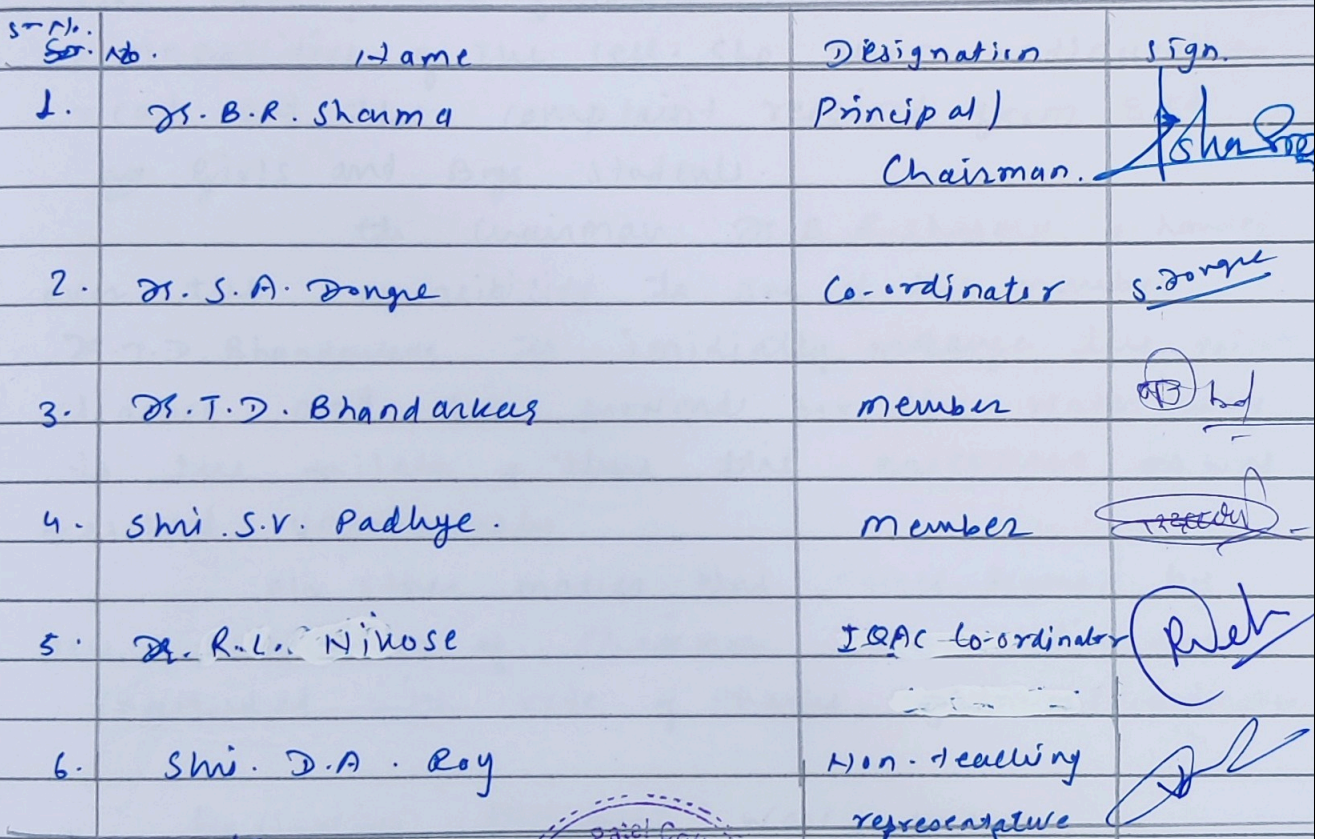 Sr. No.
Sr. No. Name Designation Sign.
1. Dr. B.R. Sharma Principal /
Chairman.
2. Dr. S.A. Dongre Co-ordinator S. Dongre
3. Dr. T.D. Bhandarkar member
4. Shri. S.V. Padhye. member
5. Dr. R.L. Nikose IQAC Co-ordinator
6. Shri. D.A. Roy Non-teaching
representative
Patel